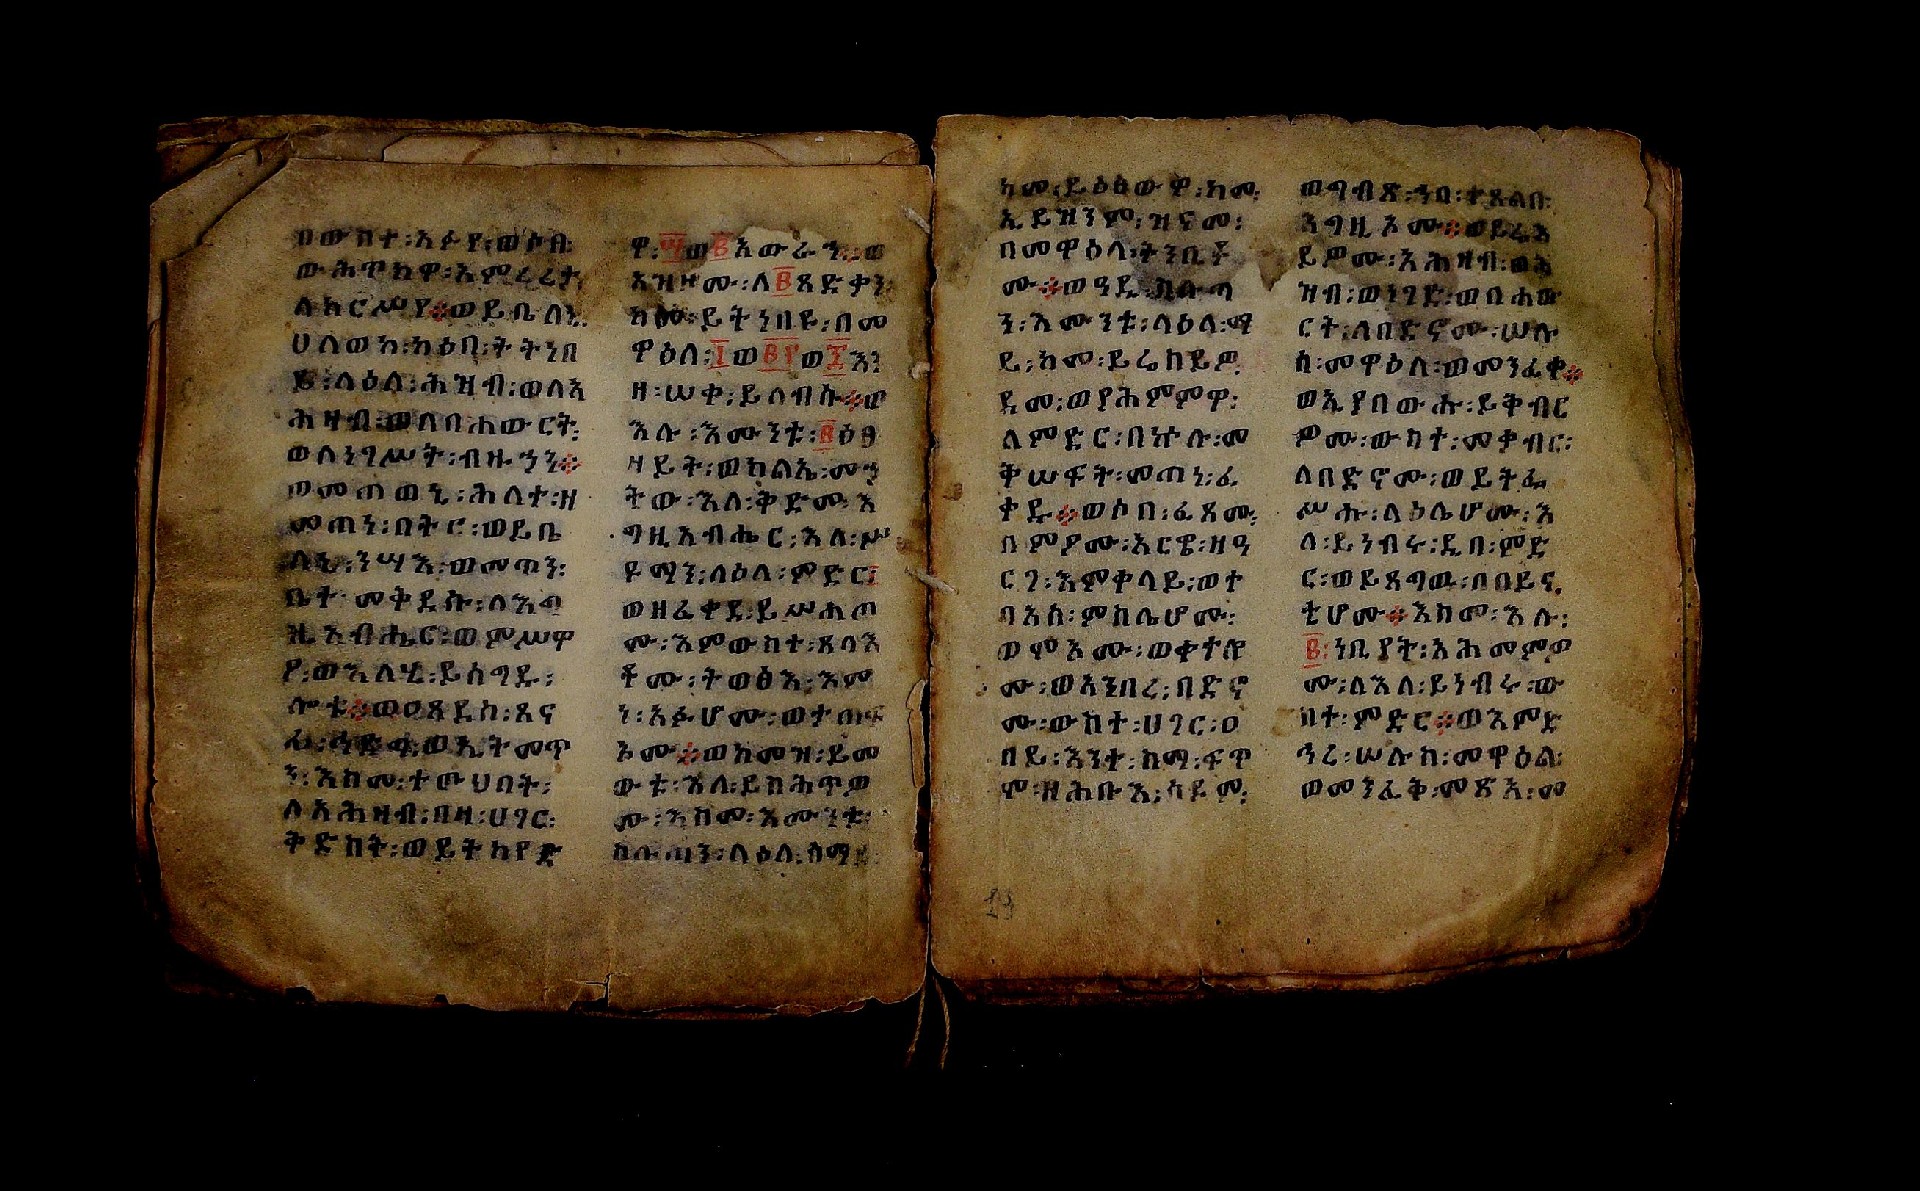 በውስተ፡አፉየ፡ወሶበ፡
ውሕጥክዋ፡አምረረታ፡
ለከርሥየ፨ወይቤለኒ፡
ሀለወከ፡ካዕበ፡ትትነበ
ይ፡ላዕለ፡ሕዝብ፡ወለአ
ሕዛብ፡ወለበሐውርት፡
ወለነገሥት፡ብዙኃን፨
ወመጠወኒ፡ሕለተ፡ዘ
መጠነ፡በትር፡ወይቤ
ለኒ፡ንሣእ፡ወመጥን፡
ቤተ፡መቅደሱ፡ለእግ
ዚአብሔር፡ወምሥዋ
ዖ፡ወእለሂ፡ይሰግዱ፡
ሎቱ፨ወዐጸደሰ፡ጸናፌ፡
ኅድግ፡ወኢትመጥ
ን፡እስመ፡ተውህበት፡
ለአሕዛብ፡በዛ፡ሀገር፡
ቅድስት፡ወይትካየድ
ዋ፡፵ወ፪አውራኀ፡ወ
አዝዞሙ፡ለ፪ጻድቃን
ከመ፡ይትነበዩ፡በመ
ዋዕለ፡፲ወ፪፻ወ፷እን
ዘ፡ሠቀ፡ይለብሱ፨ወ
እሉ፡እሙንቱ፡፪ዕፀ
ዘይት፡ወክልኤ፡መኃ
ትው፡እለ፡ቅድመ፡እ
ግዚአብሔር፡እለ፡ሥ
ዩማን፡ላዕለ፡ምድር፡
ወዘፈቀደ፡ይሥሐጦ
ሙ፡እምውስተ፡ጸላእ
ቶሙ፡ትወፅእ፡እሳ
ት፡እምአፉሆሙ፡ወታጠፍ
ኦሙ፨ወከመዝ፡ይመ
ውቱ፡እለ፡ይስሕጥዎ
ሙ፡እስመ፡እሙንቱ፡
ስሉጣን፡ላዕለ፡ሰማይ
ከመ፡ይዕፅውዋ፡ከመ፡
ኢይዝንም፡ዝናመ፡
በመዋዕለ፡ትንቢቶ
ሙ፨ወዓዲ፡ስሉጣ
ን፡እሙንቱ፡ላዕለ፡ማ
ይ፡ከመ፡ይረስይዎ፡
ደመ፡ወያሕምምዋ፡
ለምድር፡በኵሉ፡መ
ቅሠፍት፡መጠነ፡ፈ
ቀዱ፨ወሶበ፡ፈጸሙ፡
ስምዖሙ፡አርዌ፡ዘዓ
ርገ፡እምቀላይ፡ወተ
ባአሰ፡ምስሌሆሙ፡
ወሞኦሙ፡ወቀተሎ
ሙ፡ወአንበረ፡በድኖ
ሙ፡ውስተ፡ሀገር፡ዐ
ባይ፡እንተ፡ስማ፡ፍጥ
ሞ፡ዘሕቡእ፡ሰዶም፡
ወግብጽ፡ኀበ፡ተጸልበ፡
እግዚኦሙ፨ወይሬእ
ይዎሙ፡አሕዛብ፡ወሕ
ዝብ፡ወነገድ፡ወበሐው
ርት፡ለበድኖሙ፡ሠሉ
ሰ፡መዋዕለ፡ወመንፈቀ፨
ወኢያበውሑ፡ይቅብር
ዎሙ፡ውስተ፡መቃብር፡
ለበድኖሙ፡ወይትፌ
ሥሑ፡ላዕሌሆሙ፡እ
ለ፡ይነብሩ፡ዲበ፡ምድ
ር፡ወይጸግዉ፡በበይና
ቲሆሙ፨እስመ፡እሉ፡
፪፡ነቢያት፡አሕመምዎ
ሙ፡ለእለ፡ይነብሩ፡ው
ስተ፡ምድር፨ወእምድ
ኅረ፡ሠሉስ፡መዋዕል፡
ወመንፈቅ፡መጽአ፡መ